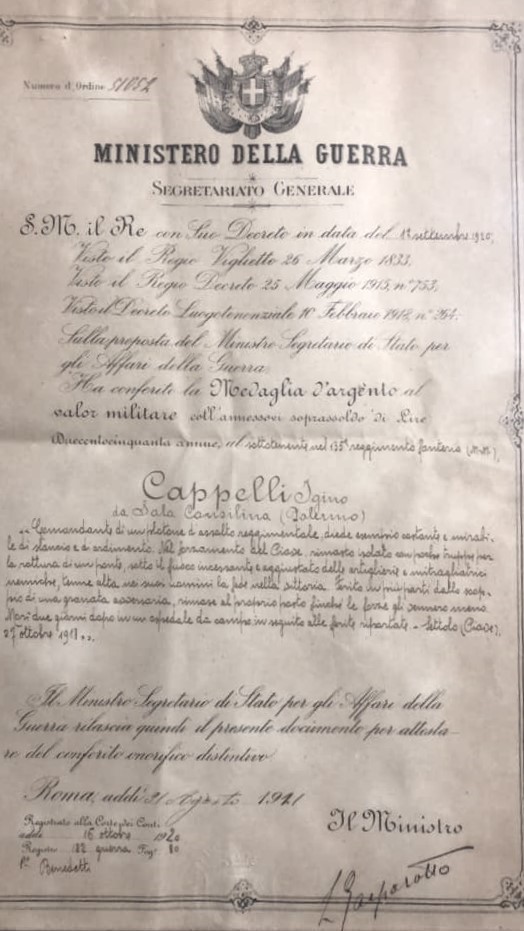 Numero d'Ordine 51052
MINISTERO DELLA GUERRA
SEGRETARIATO GENERALE
S. M. il Re con Suo Decreto in data del 1° settembre 1920,
Visto il Regio Viglietto 26 Marzo 1833,
Visto il Regio Decreto 25 Maggio 1915, n° 753,
Visto il Decreto Luogotenenziale 10 Febbraio 1918, n° 264.
Sulla proposta del Ministro Segretario di Stato per
gli Affari della Guerra
Ha conferito la Medaglia d'argento al
valor militare coll'annessovi soprassoldo di Lire
Duecentocinquanta annue, al sottotenente nel 135° reggimento fanteria (M.M.),
Cappelli Igino
da Sala Consilina (Salerno)
"Comandante di un plotone d'assalto reggimentale, diede esempio costante e mirabi-
le di slancio e di ardimento. Nel forzamento del Piave, rimasto isolato con poche truppe per
la rottura di un ponte, sotto il fuoco incessante e aggiustato delle artiglierie e mitragliatrici
nemiche, tenne alta nei suoi uomini la fede nella vittoria. Ferito in più parti dallo scop-
pio di una granata avversaria, rimase al proprio posto finché le forze gli vennero meno.
Morì due giorni dopo in un ospedale da campo in seguito alle ferite riportate. - Settolo (Piave),
27 ottobre 1918".
Il Ministro Segretario di Stato per gli Affari della
Guerra rilascia quindi il presente documento per attesta-
re del conferito onorifico distintivo
Roma, addì 31 Agosto 1921
Il Ministro
Registrato alla Corte dei Conti
addì 16 ottobre 1920
Registro 182 guerra Fog° 80
Benedetti
L. Gasparotto